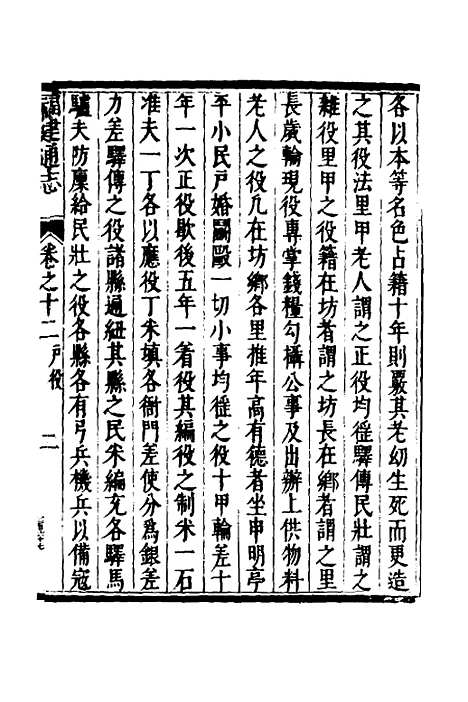 各以本等名色占籍十年則覈其老幼生死而更造
之其役法里甲老人謂之正役均徭驛傳民壯謂之
雜役里甲之役籍在坊者謂之坊長在鄉者謂之里
長歲輪現役專掌錢糧勾攝公事及出辦上供物料
老人之役凡在坊鄉各里推年高有德者坐申明亭
平小民戶婚鬬毆一切小事均徭之役十甲輪差十
年一次正役歇後五年一着役其編役之制米一石
准夫一丁各以應役丁米填各衙門差使分爲銀差
力差驛傳之役諸縣通紐其縣之民米編充各驛馬
驢夫防廩給民壯之役各縣各有弓兵機兵以備寇
福建通志
卷之十二 戶役
二